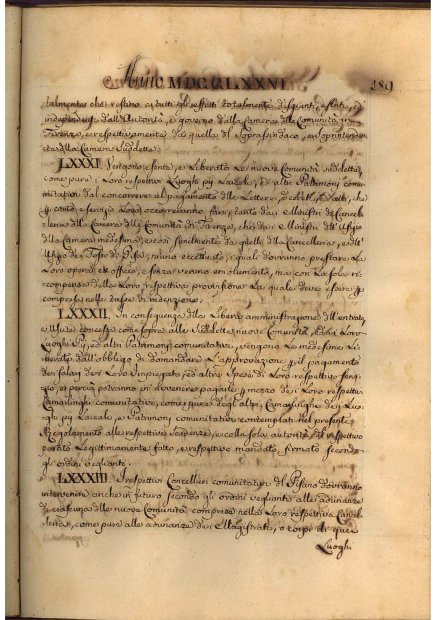 Anno MDCCLXXVI
289
talmente che restino a tutti gli effetti totalmente disgiunti, esenti, ed
independenti dall'Autorità, e governo della Camera delle Comunità di
Firenze, e respettivamente da quella del Soprassindaco, e Soprintenden
te alla Camera suddetta.
LXXXI. Vengono esente, e Liberate Le nuove Comunità suddette,
come pure i Loro respettivi Luoghi pij Laicali, ed altri Patrimonj comu
nitativi dal concorrere al pagamento delle Lettere, ed altri atti, che
p conto, e servizio Loro occorreranno farsi, tanto dai Ministri di Cancel
leria della Camera delle Comunità di Firenze, che dai Ministri dell'Ufizio
della Camera medesima, e così similmente da quelli della Cancelleria, e dell'
Ufizio dei Fossi di Pisa, niuno eccettuato, i quali dovranno prestare La
Loro opera ex officio, e senza verun emolumento, ma con La sola ri
compensa della Loro respettiva provvisione La quale deve essere
compresa nelle tasse di redenzione.
LXXXII. In conseguenza della Libera amministrazione dell'entrate,
e Uscite concessa come sopra alle suddette nuove Comunità, ed ai Loro
Luoghi Pij, et altri Patrimonj comunitativi, vengono Le medesime Li
berate dall'obbligo di domandare L'approvazione p il pagamento
dei salarj dei Loro Impiegati, ed altre spese di Loro respettivo ser
vizio, perciò potranno in avvenire pagarle p mezzo dei Loro respettivi
Camarlinghi comunitativi, come pure degli altri Camarlinghi dei Luo
ghi pij Laicali, e Patrimonj comunitativi contemplati nel presente
Regolamento alle respettive scadenze, e colla sola autorità del respettivo
partito Legittimamente fatto, e respettivo mandato firmato secondo
gli ordini veglianti.
LXXXIII I respettivi Cancellieri comunitativi del Pisano dovranno
intervenire anche in futuro secondo gli ordini veglianti alle adunanze
di ciascuna delle nuove Comunità compresa nella Loro respettiva Cancel
leria, come pure alle adunanze dei Magistrati, o corpi di quei
Luoghi